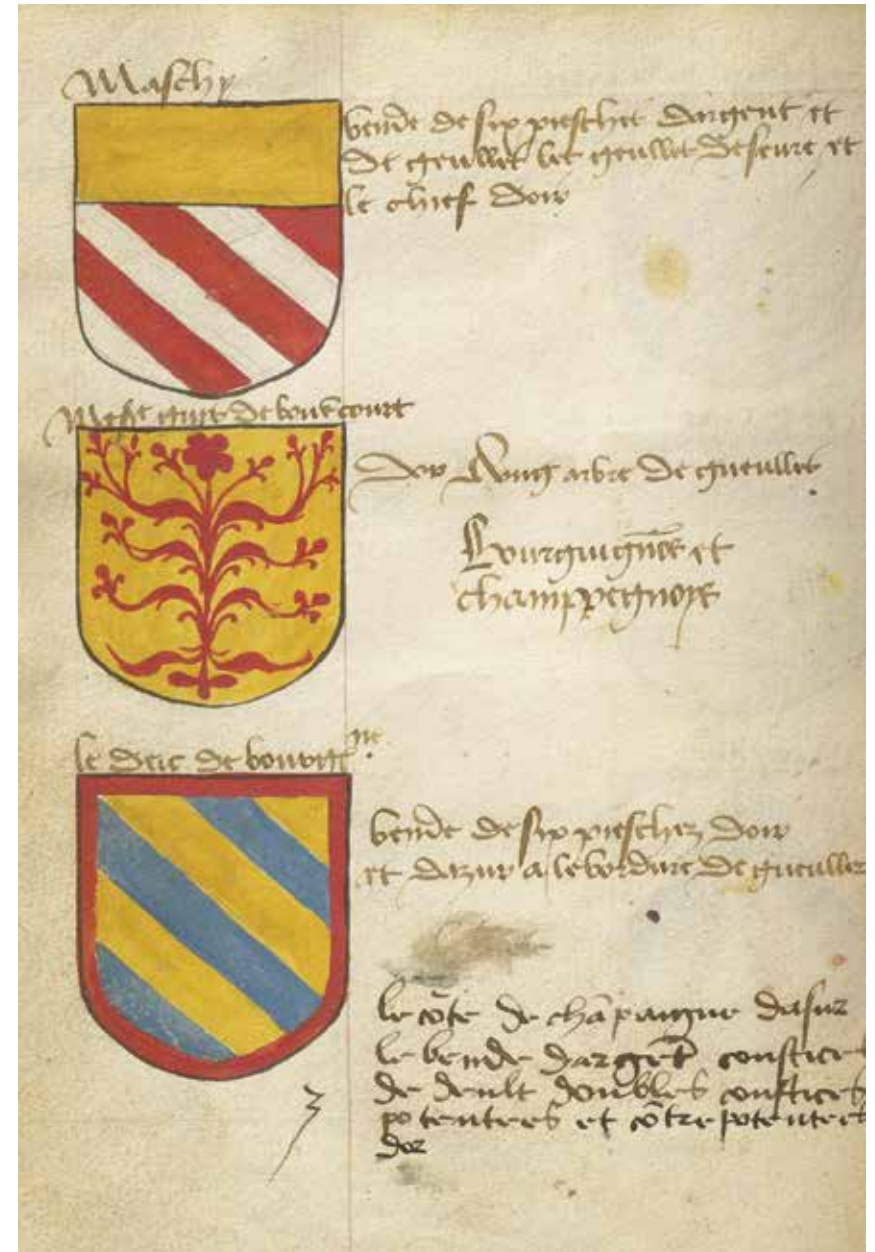 Maschy
bende de six pieschez dargent et
de geulles les geulles deseure et
le chief dor
Mess guys de bouccourt
dor A ung arbre de gueulles
Bourguignōs et
champpegnoys
le duc de bourggne
bende de six pieschez dor
et dazur a lebordure de gueulles
le cōte de chāpaigne dasur
le bende dargēt constices
de deult doubles constices
potentees et cōtrepotentees
dor